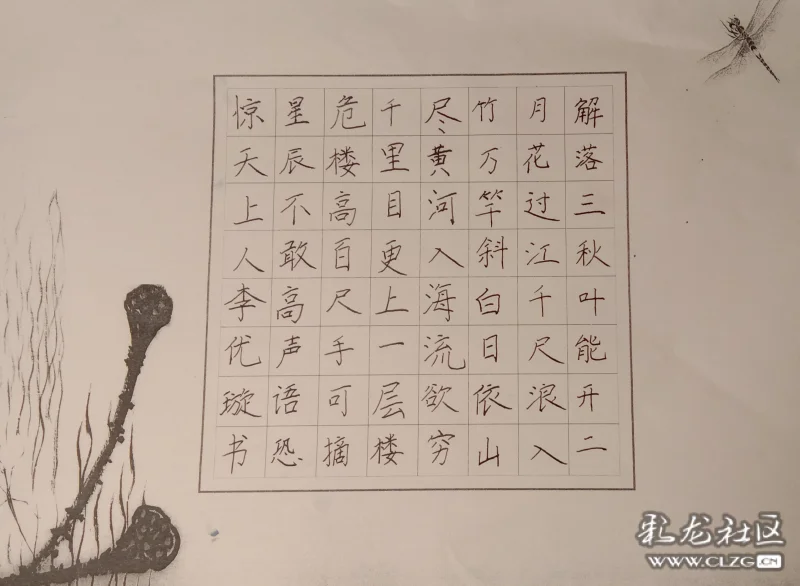 解落三秋叶能开二
月花过江千尺浪入
竹万竿斜白日依山
尽黄河入海流欲穷
千里目更上一层楼
危楼高百尺手可摘
星辰不敢高声语恐
惊天上人李优璇书
彩龙社区
WWW.CLZG.CN